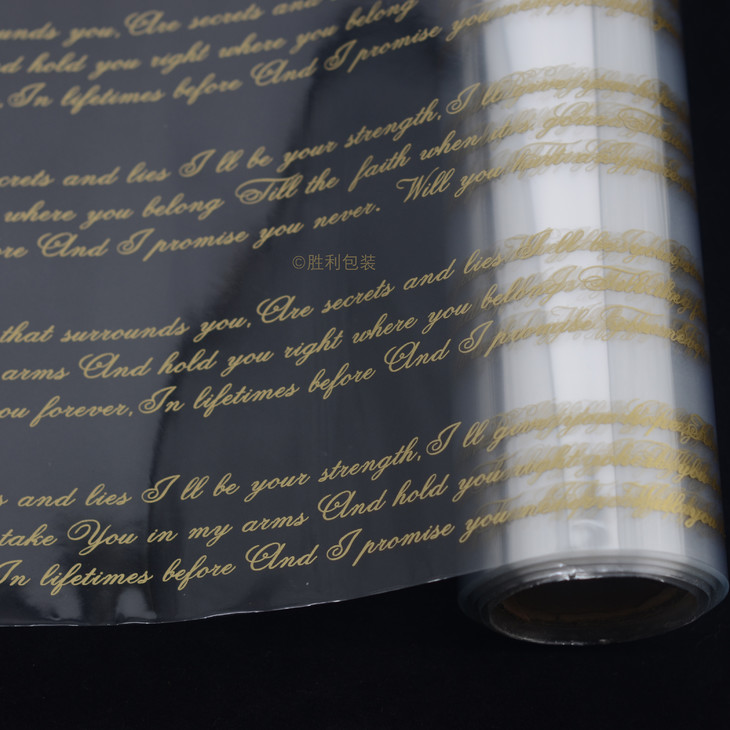 you, Are secrets and
hold you right where you belong
In lifetimes before And I promise you
and lies I ll be your strength, I ll
where you belong Till the faith when
And I promise you never. Will you
©胜利包装
that surrounds you, Are secrets and lies
arms And hold you right where you
you forever, In lifetimes before And I
and lies I ll be your strength, I ll give
take You in my arms And hold you
In lifetimes before And I promise you